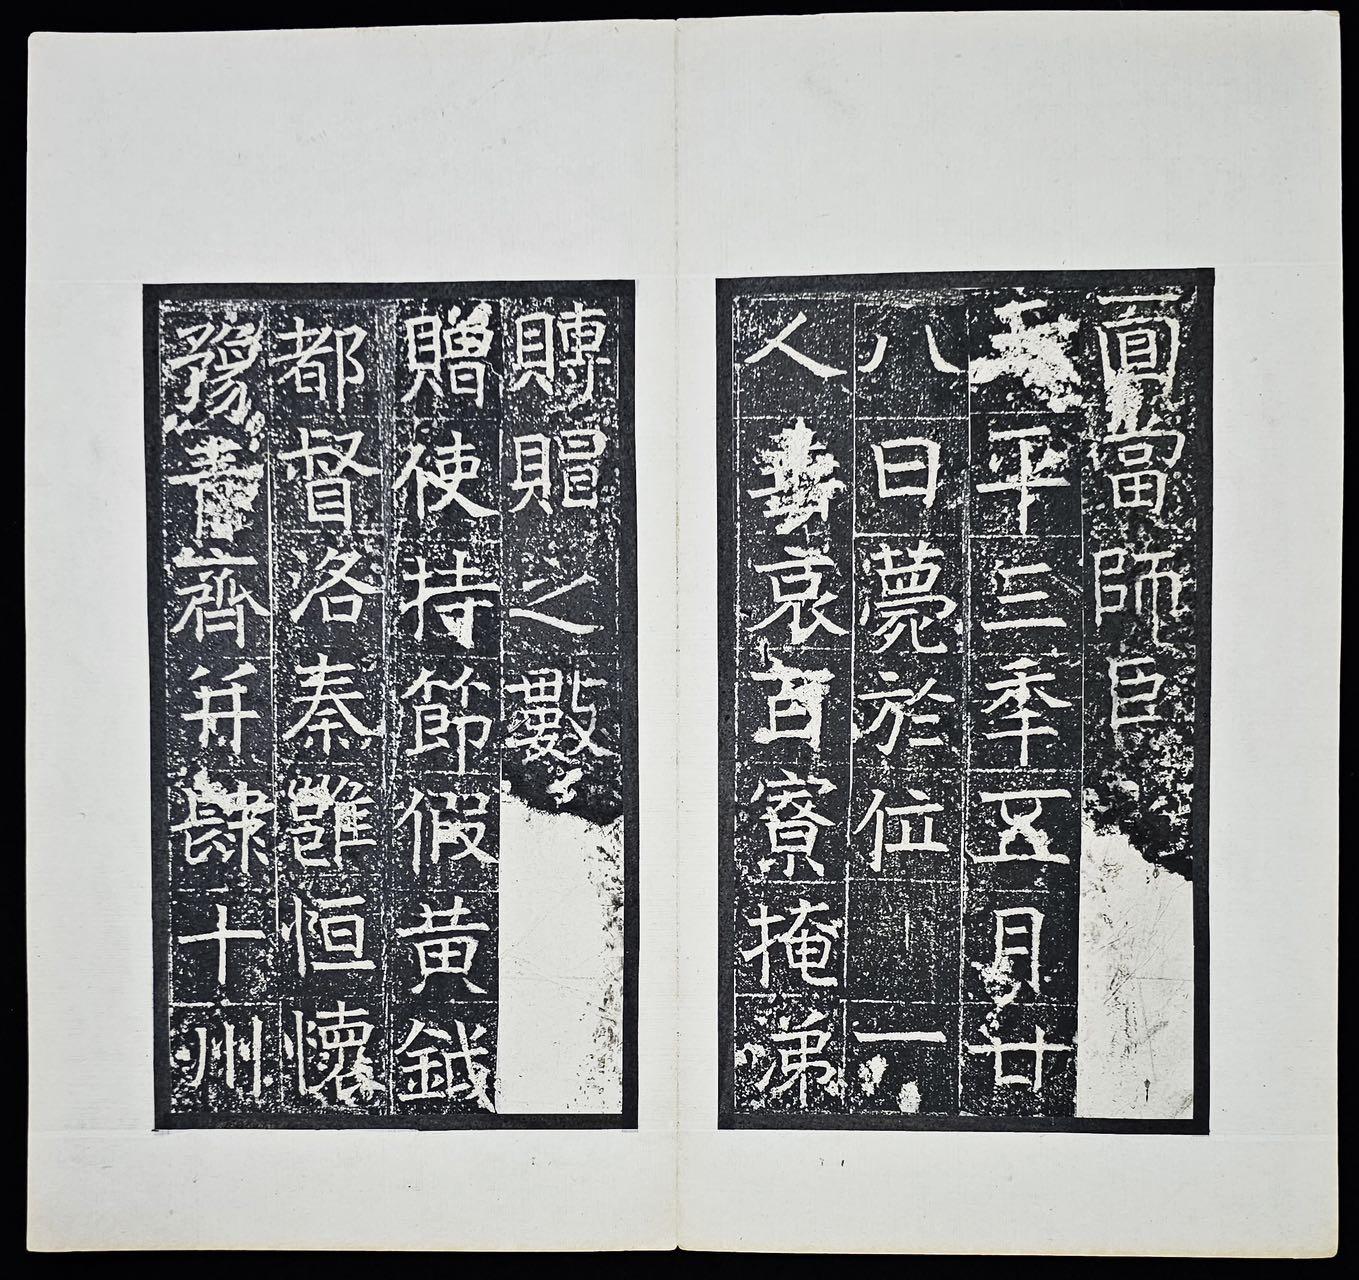 富師臣
平三秊五月廿
八日薨於位一
人哀百寮掩涕
賻賵之數
贈使持節假黄鉞
都督洛秦雝恒懷
豫青齊并肆十州